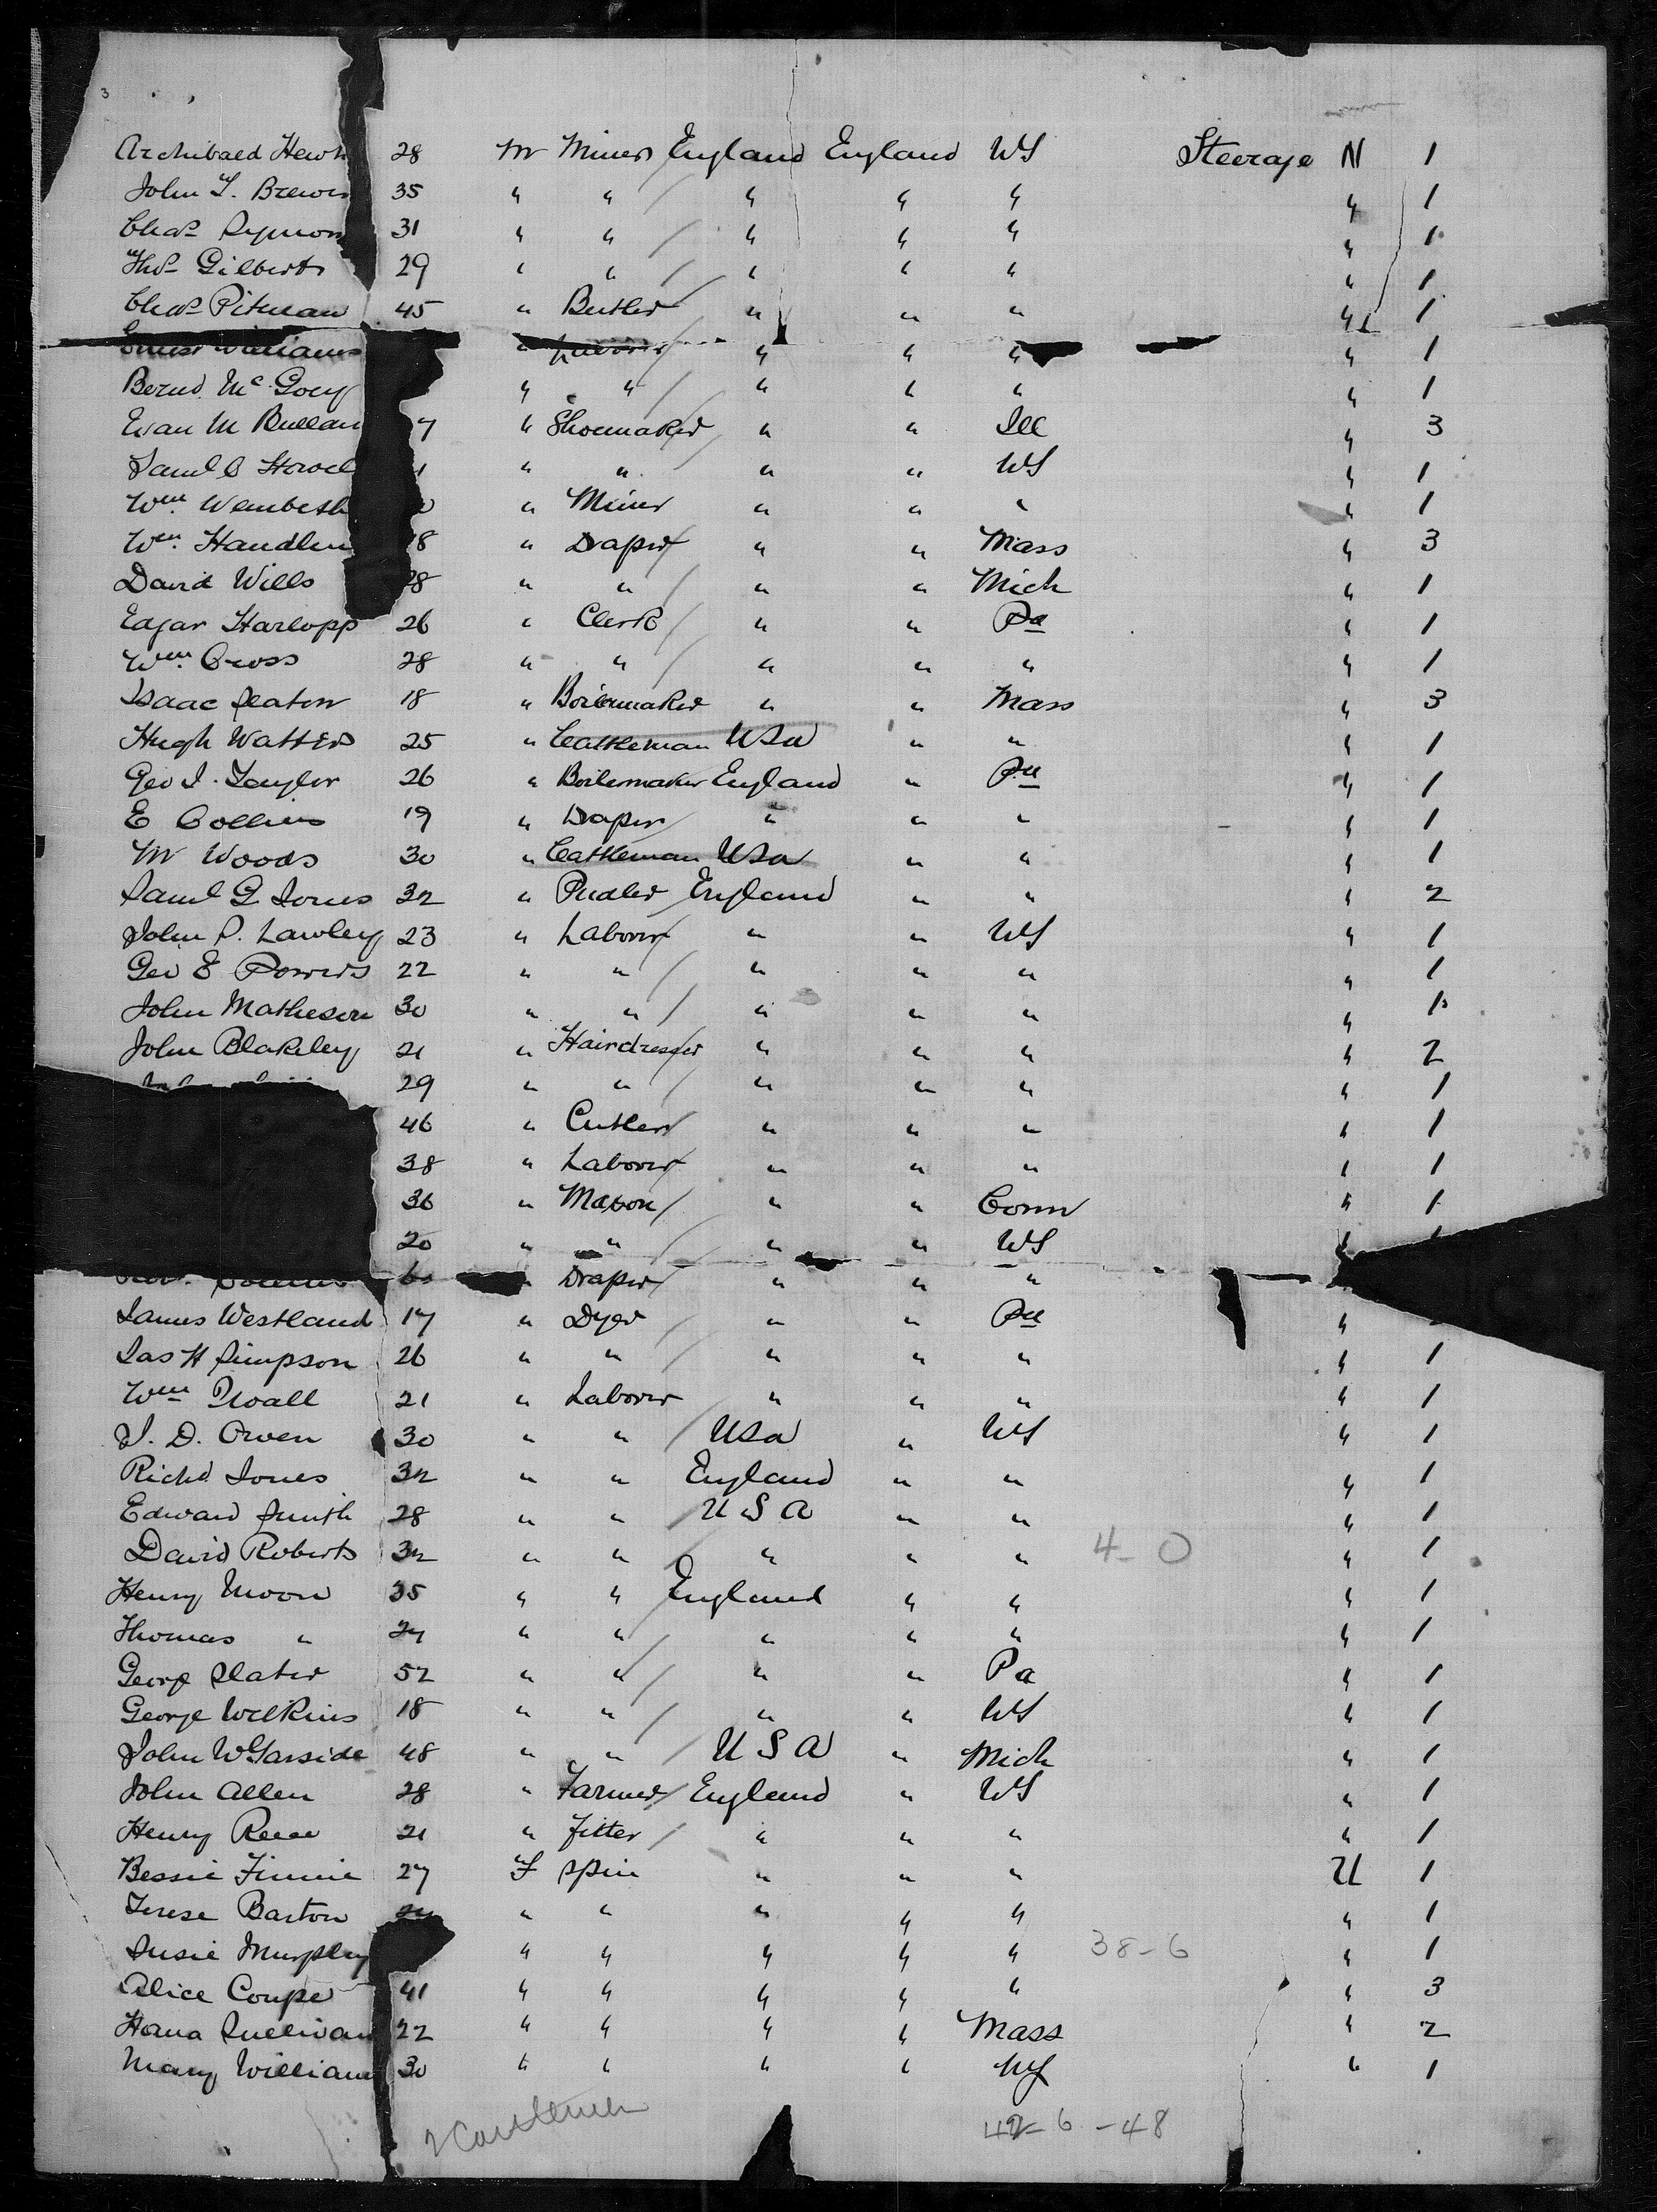 3
Archibald Hewh 28 M Miner England England WS Steerage N 1
John T. Brewer 35 " " / " " " " 1
Chas Symon 31 " " / " " " " 1
Thos Gilberts 29 " " / " " " " 1
Chas Pitman 45 " Butler " " " " 1
Ernest Williams " Laborer / " " " " 1
Bernd. McGoey " " / " " " " 1
Evan M Bullan 7 " Shoemaker " " Ill " 3
Saml C Howel 1 " " " " WS " 1
Wm. Wembeth 0 " Miner " " " " 1
Wm. Handlen 8 " Draper " " Mass " 3
David Wills 28 " " / " " Mich " 1
Edgar Harlopp 26 " Clerk / " " Pa " 1
Wm. Cross 28 " " / " " " " 1
Isaac Seaton 18 " Boilermaker " " Mass " 3
Hugh Watters 25 " Cattleman USA " " " 1
Geo J. Taylor 26 " Boilermaker England " Pa " 1
E Collins 19 " Draper / " " " " 1
M Woods 30 " Cattleman USA " " " 1
Saml G Jones 32 " Pudler / England " " " 2
John P. Lawley 23 " Laborer " " WS " 1
Geo E Powers 22 " " / " " " " 1
John Matheson 30 " " / " " " " 1
John Blakeley 21 " Hairdresser " " " " 2
29 " " / " " " " 1
46 " Cutler / " " " " 1
38 " Laborer " " " " 1
36 " Mason / " " Conn " 1
20 " " / " " WS "
60 " Draper / " " " "
James Westland 17 " Dyer / " " Pa "
Jas H Simpson 26 " " / " " " " 1
Wm Wall 21 " Laborer " " " " 1
J. D. Owen 30 " " / USA " WS " 1
Richd Jones 32 " " England " " " 1
Edward Smith 28 " " / USA " " " 1
David Roberts 32 " " / " " " 4-0 " 1
Henry Moon 35 " " / England " " " 1
Thomas " 24 " " / " " " " 1
George Slater 52 " " / " " Pa " 1
George Wilkins 18 " " / " " WS " 1
John W Garside 48 " " / USA " Mich " 1
John Allen 28 " Farmer / England " WS " 1
Henry Reece 21 " Fitter / " " " " 1
Bessie Finnie 27 F Spin " " " U 1
Terese Barton " " " " " " 1
Susie Murphy " " " " " 38-6 " 1
Alice Coupe 41 " " " " " " 3
Hana Sullivan 22 " " " " Mass " 2
Mary William 30 " " " " NY " 1
2 Cattlemen
42-6-48